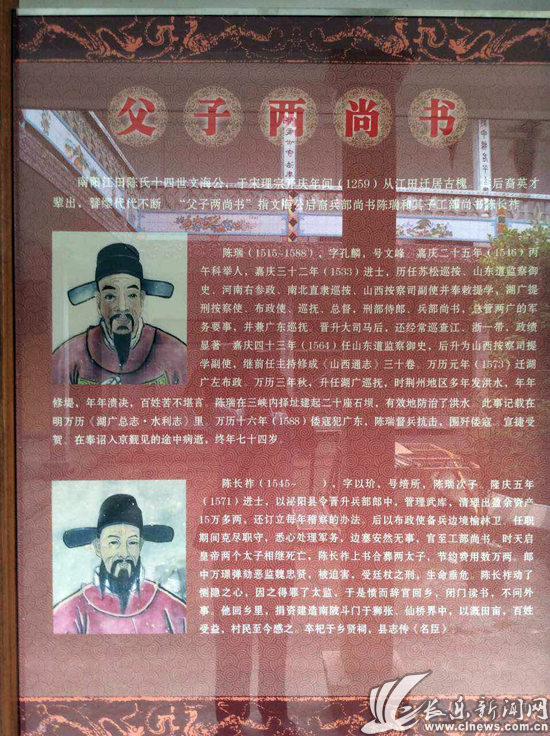 父子两尚书
南阳江田陈氏十四世文海公，于宋理宗开庆年间（1259）从江田迁居古槐，其后裔英才
辈出，簪缨代代不断 “父子两尚书”指文海公后裔兵部尚书陈瑞和其子工部尚书陈长祚
陈瑞（1515~1588），字孔麟，号文峰。嘉庆二十五年（1546）丙
午科举人，嘉庆三十二年（1533）进士，历任苏松巡按、山东道监察御
史、河南右参政、南北直隶巡按、山西按察司副使并奉敕提学，湖广提
刑按察使、布政使、巡抚、总督，刑部侍郎、兵部尚书，总管两广的军
务要事，并兼广东巡抚。晋升大司马后，还经常巡查江、浙一带，政绩
显著 嘉庆四十三年（1564）任山东道监察御史，后升为山西按察司提
学副使，继前任主持修成《山西通志》三十卷。万历元年（1573）迁湖
广左布政。万历三年秋，升任湖广巡抚，时荆州地区多年发洪水，年年
修堤，年年溃决，百姓苦不堪言 陈瑞在三峡内择址建起二十座石坝，有效地防治了洪水 此事记载在
明万历《湖广总志·水利志》里 万历十六年（1588）倭寇犯广东，陈瑞督兵抗击，围歼倭寇 宣捷受
贺 在奉诏入京觐见的途中病逝，终年七十四岁
陈长祚（1545~ ），字以玠，号培所，陈瑞次子 隆庆五年
（1571）进士，以泌阳县令晋升兵部郎中，管理武库，清理出盈余资产
15万多两，还订立每年稽察的办法。后以布政使备兵边境榆林卫 任职
期间克尽职守，悉心处理军务，边塞安然无事，官至工部尚书 时天启
皇帝两个太子相继死亡，陈长祚上书合葬两太子，节约费用数万两 郎
中万璟弹劾恶监魏忠贤，被迫害，受廷杖之刑，生命垂危 陈长祚动了
恻隐之心，因之得罪了太监，于是愤而辞官回乡，闭门读书，不问外
事 他回乡里，捐资建造南陂斗门于狮张、仙桥界中，以溉田亩，百姓
受益，村民至今感之 卒祀于乡贤祠，县志传《名臣》
长乐新闻网
www.clnews.com.cn